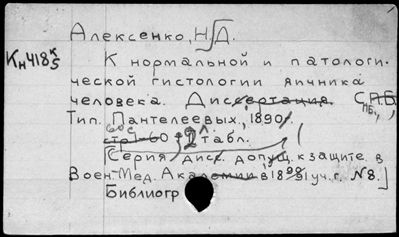 Алексенко, Н.Д.
Кн418К/5
К нормальной и патологи-
ческой гистологии яичника
человека. Диссертация. С.П.Б.
ПБ.,
Тип. Пантелеевых, 1890.
60 с.
стр 1-60, 2 табл.
[Серия дисс. допущ. к защите в
Воен-Мед. Академии в 1890/91 уч. г. №8.]
Библиогр